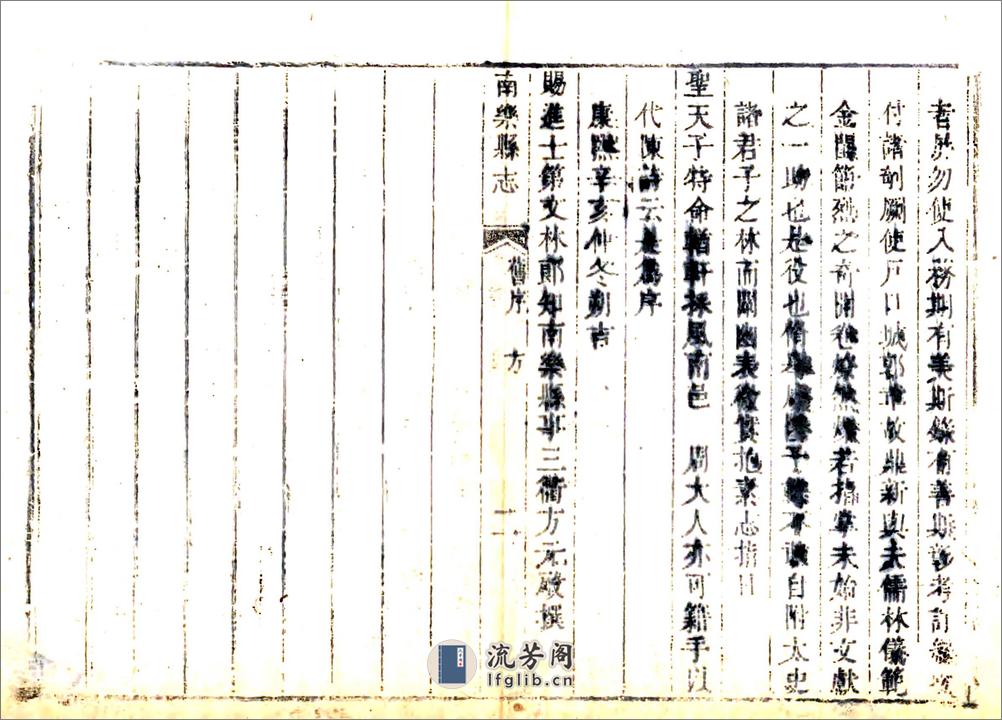 者㫁勿使入務期有美斯錄有善斯彰考訂
付諸剞劂使戶口城郭革故鼎新與夫儒林儀範
金闺節烈之奇開卷燎然燦若指掌未始非文獻
之一助也是役也脩舉廢墜予雖不敢自附太史
諸君子之林而闡幽表微實抱素志指日
聖天子特命輶軒採風南邑 周大人亦可籍手以
代陳詩云是為序
康熙辛亥仲冬朔吉
賜進士第文林郎知南樂縣事三衢方元啟撰
南樂縣志 舊序 方 二
流芳阁
lfglib.cn